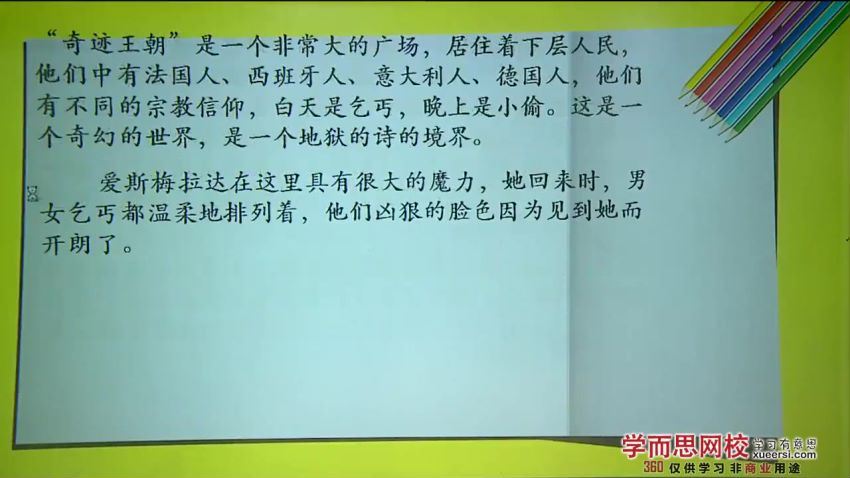 “奇迹王朝”是一个非常大的广场，居住着下层人民，
他们中有法国人、西班牙人、意大利人、德国人，他们
有不同的宗教信仰，白天是乞丐，晚上是小偷。这是一
个奇幻的世界，是一个地狱的诗的境界。
爱斯梅拉达在这里具有很大的魔力，她回来时，男
女乞丐都温柔地排列着，他们凶狠的脸色因为见到她而
开朗了。
学而思网校 学习有意思
xueersi.com
360 仅供学习 非商业用途